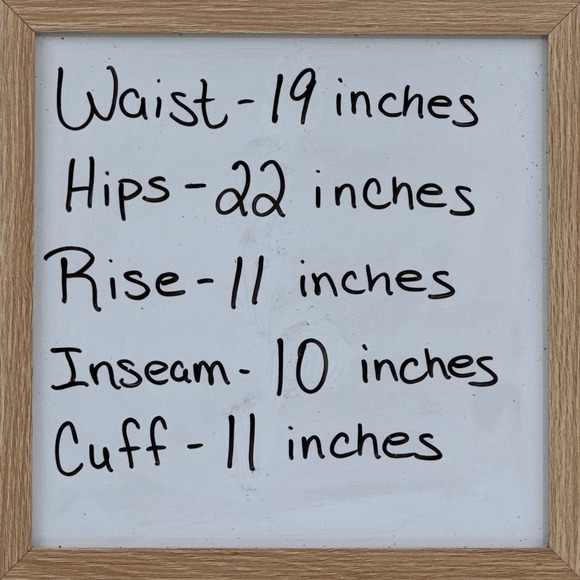 Waist - 19 inches
Hips - 22 inches
Rise - 11 inches
Inseam - 10 inches
Cuff - 11 inches